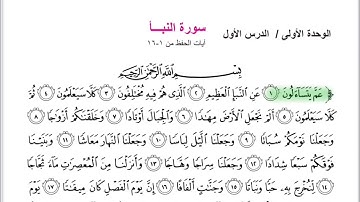 الوحدة الأولى / الدرس الأول
سورة النبأ
آيات الحفظ من ١-١٦
بِسْمِ اللَّهِ الرَّحْمَٰنِ الرَّحِيمِ
عَمَّ يَتَسَاءَلُونَ ١ عَنِ النَّبَإِ الْعَظِيمِ ٢ الَّذِي هُمْ فِيهِ مُخْتَلِفُونَ ٣ كَلَّا سَيَعْلَمُونَ ٤ ثُمَّ
كَلَّا سَيَعْلَمُونَ ٥ أَلَمْ نَجْعَلِ الْأَرْضَ مِهَادًا ٦ وَالْجِبَالَ أَوْتَادًا ٧ وَخَلَقْنَاكُمْ أَزْوَاجًا ٨
وَجَعَلْنَا نَوْمَكُمْ سُبَاتًا ٩ وَجَعَلْنَا اللَّيْلَ لِبَاسًا ١٠ وَجَعَلْنَا النَّهَارَ مَعَاشًا ١١ وَبَنَيْنَا
فَوْقَكُمْ سَبْعًا شِدَادًا ١٢ وَجَعَلْنَا سِرَاجًا وَهَّاجًا ١٣ وَأَنزَلْنَا مِنَ الْمُعْصِرَاتِ مَاءً ثَجَّاجًا
١٤ لِّنُخْرِجَ بِهِ حَبًّا وَنَبَاتًا ١٥ وَجَنَّاتٍ أَلْفَافًا ١٦ إِنَّ يَوْمَ الْفَصْلِ كَانَ مِيقَاتًا ١٧ يَوْمَ